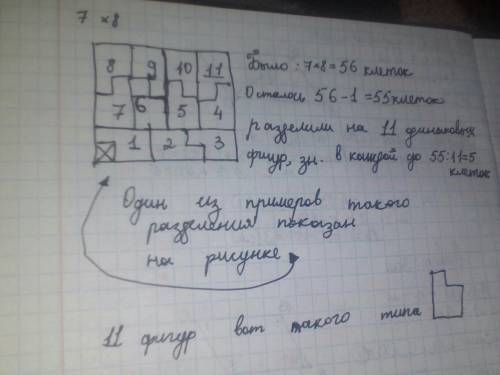 7 × 8
8 9 10 11
7 6 5 4
1 2 3
Было : 7×8 = 56 клеток
Осталось 56 - 1 = 55 клеток
разделили на 11 одинаковых
фигур, зн. в каждой до 55:11=5
клеток
Один из примеров такого
разделения показан
на рисунке
11 фигур вот такого типа